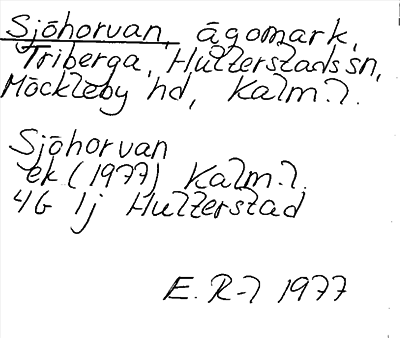 Sjöhorvan, ägomark,
Triberga, Hulterstads sn,
Möckleby hd, Kalm. l.
Sjöhorvan
ek (1977) Kalm. l.
4G 1j Hulterstad
E. R-l 1977